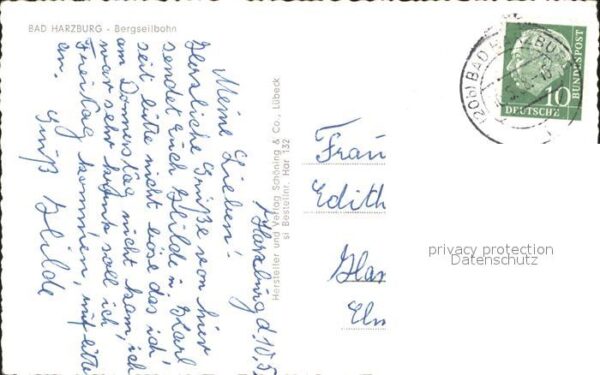 BAD HARZBURG - Bergseilbahn
Harzburg d. 10.5
Meine Lieben!
Herzliche Grüße von hier
sendet Euch Hilde u. Karl
seit bitte nicht böse das ich
am Donnerstag nicht kam, ich
war sehr krank soll ich
Freitag kommen,
an. Gruß Hilde
Hersteller und Verlag Schöning & Co., Lübeck
si Bestellnr. Har 132
Frau
Edith
(20b) BAD HARZBURG
DEUTSCHE
BUNDESPOST
10
privacy protection
Datenschutz